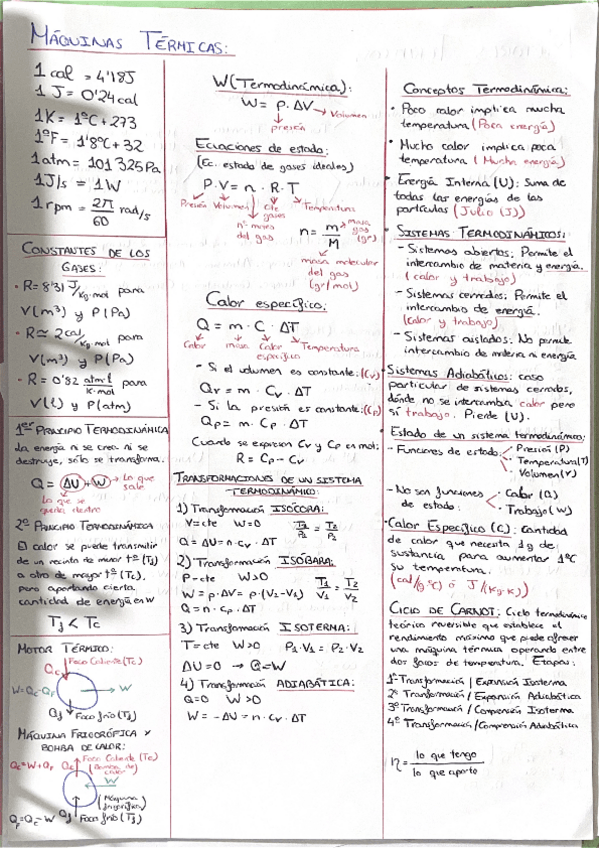 MÁQUINAS TÉRMICAS:
1 cal = 4'18J
1 J = 0'24 cal
1K = 1ºC + 273
1ºF = 1'8ºC + 32
1 atm = 101 325 Pa
1 J/s = 1 W
1 rpm = 2π/60 rad/s
CONSTANTES DE LOS
GASES:
· R = 8'31 J/Kg·mol para
V(m³) y P(Pa)
· R ≈ 2 cal/Kg·mol para
V(m³) y P(Pa)
- R = 0'82 atm·l/K·mol para
V(l) y P(atm)
1er PRINCIPIO TERMODINÁMICA
La energía ni se crea ni se
destruye, sólo se transforma.
Q = ΔU + W → Lo que sale
Lo que se
queda dentro
2º PRINCIPIO TERMODINÁMICA
El calor se puede transmitir
de un recinto de menor tª (Tf)
a otro de mayor tª (Tc),
pero aportando cierta
cantidad de energía en W
Tf < Tc
MOTOR TÉRMICO:
Qc Foco Caliente (Tc)
W = Qc - QF → W
Qf Foco frío (Tf)
MÁQUINA FRIGORÍFICA Y
BOMBA DE CALOR:
Qc = W + QF Qc Foco Caliente (Tc)
(Bomba de calor)
W
(Máquina frigorífica)
QF = Qc - W Qf Foco frío (Tf)
W (Termodinámica):
W = P · ΔV → Volumen
presión
Ecuaciones de estado:
(Ec. estado de gases ideales)
P · V = n · R · T
Presión Volumen Cte gases Temperatura
nº moles
del gas
n = m/M → masa gas (gr)
masa molecular
del gas
(gr/mol)
Calor específico:
Q = m · C · ΔT
Calor masa Calor específico Temperatura
- Si el volumen es constante: (Cv)
Qv = m · Cv · ΔT
- Si la presión es constante: (Cp)
Qp = m · Cp · ΔT
Cuando se expresan Cv y Cp en mol:
R = Cp - Cv
TRANSFORMACIONES DE UN SISTEMA
TERMODINÁMICO:
1) Transformación ISÓCORA:
V = cte W = 0 T1/P1 = T2/P2
Q = ΔU = n · Cv · ΔT
2) Transformación ISOBARA:
P = cte W > 0
W = P · ΔV = P · (V2 - V1) T1/V1 = T2/V2
Q = n · Cp · ΔT
3) Transformación ISOTERMA:
T = cte W > 0 P1 · V1 = P2 · V2
ΔU = 0 → Q = W
4) Transformación ADIABÁTICA:
Q = 0 W > 0
W = - ΔU = n · Cv · ΔT
Conceptos Termodinámica:
· Poco calor implica mucha
temperatura (Poca energía)
· Mucho calor implica poca
temperatura (Mucha energía)
· Energía Interna (U): Suma de
todas las energías de las
partículas (Julio (J))
· SISTEMAS TERMODINÁMICOS:
- Sistemas abiertos: Permite el
intercambio de materia y energía.
(calor y trabajo)
- Sistemas cerrados: Permite el
intercambio de energía.
(calor y trabajo)
- Sistemas aislados: No permite
intercambio de materia ni energía
· Sistemas Adiabáticos: caso
particular de sistemas cerrados,
dónde no se intercambia calor pero
sí trabajo. Pierde (U).
· Estado de un sistema termodinámico:
- Funciones de estado: Presión (P)
Temperatura (T)
Volumen (V)
- No son funciones Calor (Q)
de estado: Trabajo (W)
· Calor Específico (C): Cantidad
de calor que necesita 1g de
sustancia para aumentar 1ºC
su temperatura.
(cal/g·ºC) ó J/(Kg·K))
CICLO DE CARNOT: Ciclo termodinámico
teórico reversible que establece el
rendimiento máximo que puede ofrecer
una máquina térmica operando entre
dos focos de temperatura. Etapas:
1ª Transformación / Expansión Isoterma
2ª Transformación / Expansión Adiabática
3ª Transformación / Compresión Isoterma
4ª Transformación / Compresión Adiabática
η = lo que tengo / lo que aporto